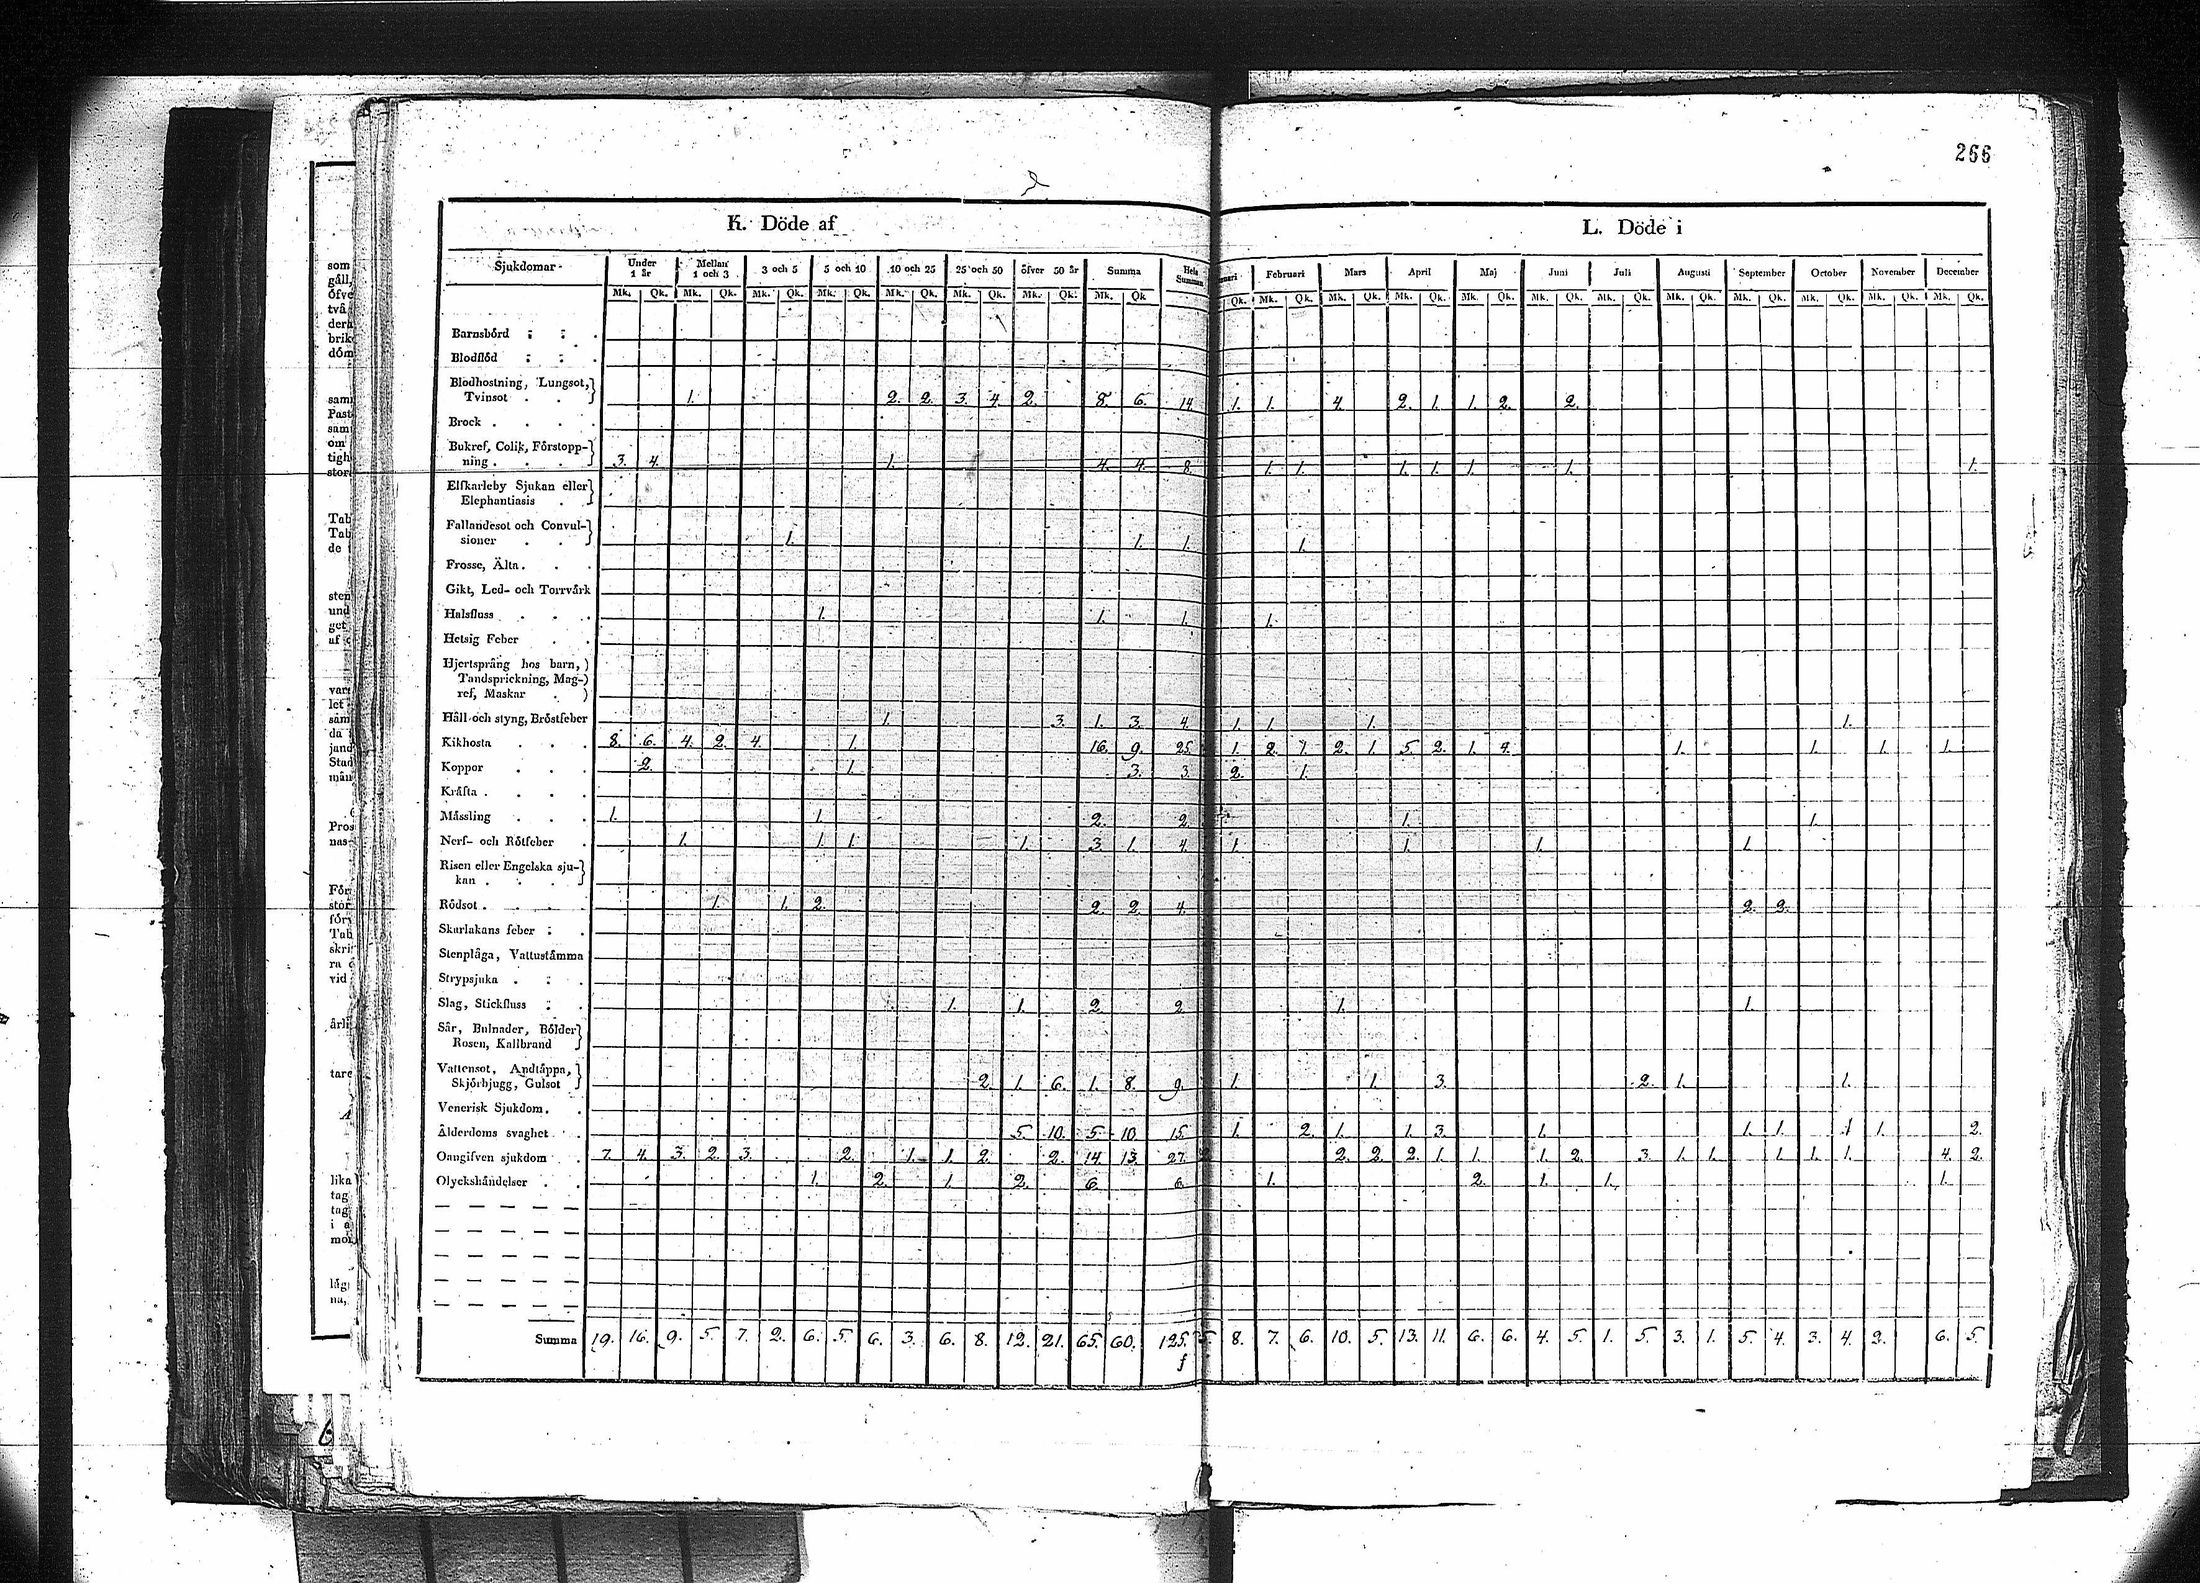 266
K. Döde af
L. Döde i
Sjukdomar
Under 1 år
Mellan 1 och 3
3 och 5
5 och 10
10 och 25
25 och 50
öfver 50 år
Summa
Hela Summan
Februari
Mars
April
Maj
Juni
Juli
Augusti
September
October
November
December
Mk. Qk. Mk. Qk. Mk. Qk. Mk. Qk. Mk. Qk. Mk. Qk. Mk. Qk. Mk. Qk
Qk. Mk. Qk. Mk. Qk. Mk. Qk. Mk. Qk. Mk. Qk. Mk. Qk. Mk. Qk. Mk. Qk. Mk. Qk. Mk. Qk. Mk. Qk.
Barnsbörd
Blodflöd
Blodhostning, Lungsot,
Tvinsot 1. 2. 2. 3. 4. 2. 8. 6. 14. 1. 1. 4. 2. 1. 1. 2. 2.
Brock
Bukref, Colik, Förstopp-
ning 3. 4. 1. 4. 4. 8. 1. 1. 1. 1. 1. 1. 1.
Elfkarleby Sjukan eller
Elephantiasis
Fallandesot och Convul-
sioner 1. 1. 1. 1.
Frosse, Älta
Gikt, Led- och Torrvärk
Halsfluss 1. 1. 1. 1.
Hetsig Feber
Hjertsprång hos barn,
Tandsprickning, Mag-
ref, Maskar
Håll och styng, Bröstfeber 1. 3. 1. 3. 4. 1. 1. 1. 1.
Kikhosta 8. 6. 4. 2. 4. 1. 16. 9. 25. 1. 2. 1. 2. 1. 5. 2. 1. 4. 1. 1. 1. 1.
Koppor 2. 1. 3. 3. 2. 1.
Kräfta
Mässling 1. 1. 2. 2. 1. 1.
Nerf- och Rötfeber 1. 1. 1. 1. 3. 1. 4. 1. 1. 1. 1.
Risen eller Engelska sju-
kan
Rödsot 1. 1. 2. 2. 2. 4. 2. 2.
Skarlakans feber
Stenplåga, Vattustämma
Strypsjuka
Slag, Stickfluss 1. 1. 2. 2 1. 1.
Sår, Bulnader, Bölder
Rosen, Kallbrand
Vattensot, Andtäppa,
Skjörbjugg, Gulsot 2. 1. 6. 1. 8. 9. 1. 1. 3. 2. 1. 1.
Venerisk Sjukdom
Ålderdoms svaghet 5. 10. 5. 10. 15. 1. 2. 1. 1. 3. 1. 1. 1. 1 1. 2.
Oangifven sjukdom 7. 4. 3. 2. 3. 2. 1. 1. 2. 2. 14. 13. 27. 2. 2. 2. 1. 1. 1. 2. 3. 1. 1. 1. 1. 1. 4. 2.
Olyckshändelser 1. 2. 1. 2. 6. 6. 1. 2. 1. 1. 1.
Summa 19. 16. 9. 5. 7. 2. 6. 5. 6. 3. 6. 8. 12. 21. 65. 60. 125. 5. 8. 7. 6. 10. 5. 13. 11. 6. 6. 4. 5. 1. 5. 3. 1. 5. 4. 3. 4. 2. 6. 5.